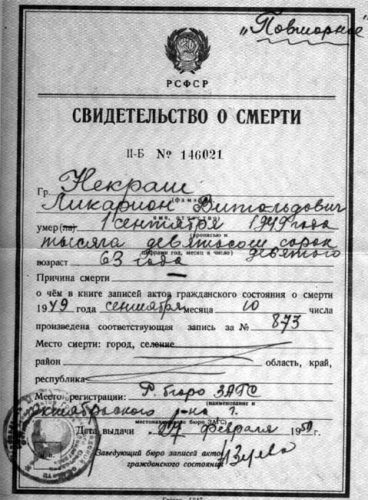 „Повторное"
РСФСР
СВИДЕТЕЛЬСТВО О СМЕРТИ
II-Б № 146021
Гр. Некраш
(фамилия,
Ликарион Витольдович
имя, отчество)
умер(ла) 1 сентября 1949 года
(прописью и
тысяча девятьсот сорок
цифрами год, месяц и число)
девятого
возраст 63 года
Причина смерти —
о чём в книге записей актов гражданского состояния о смерти
1949 года сентября месяца 10 числа
произведена соответствующая запись за № 873
Место смерти: город, селение
район область, край,
республика
Место регистрации: Р. бюро ЗАГС
(наименование и
Октябрьского р-на г.
местонахождение бюро ЗАГС)
Дата выдачи февраля 195 г.
Заведующий бюро записей актов
гражданского состояния